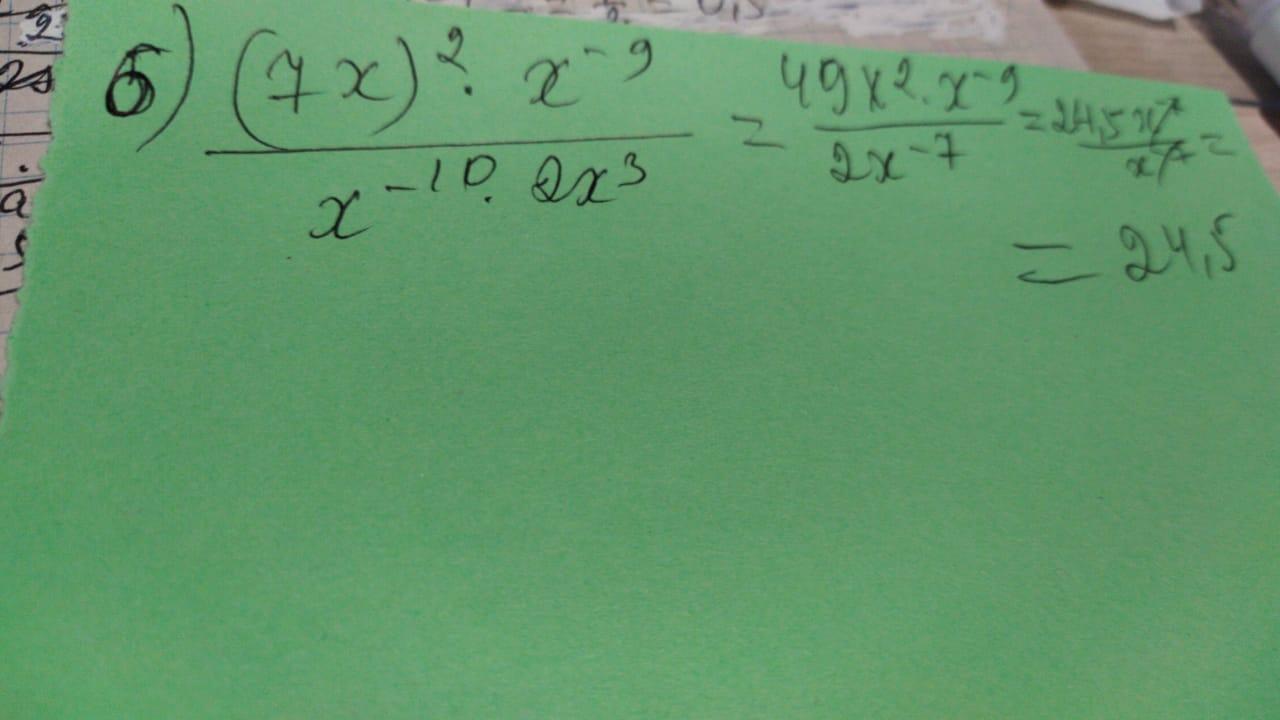 6) (7x)^2 · x^-9 / x^-10 · 2x^3 = 49x^2 · x^-9 / 2x^-7 = 24,5 x^-7 / x^-7 =
= 24,5